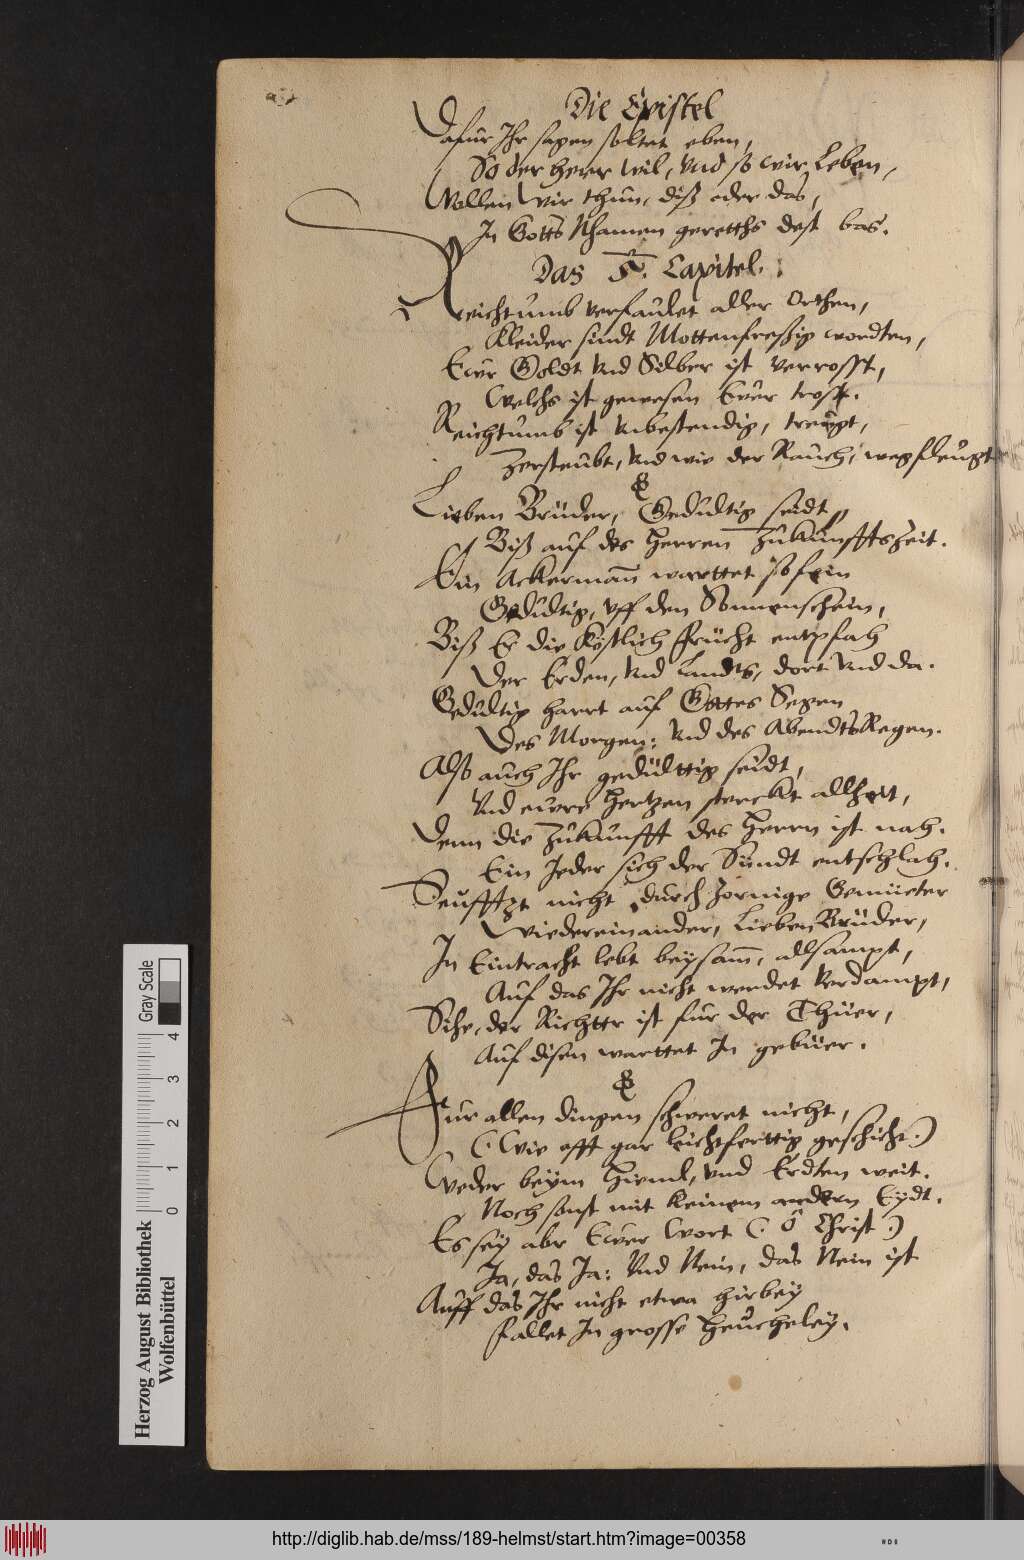 Die Epistel
Dafür Ihr sagen soltet eben,
So der herr wil, vnd so wir Leben,
Wollen Wir thun, diß oder das,
In Gotts Nhamen geretths dest bas.
Das 5. Capitel.
Reichtumb verfaulet aller Orthen,
Kleider sindt Mottenfreßig wordten,
Ewr Goldt vnd Silber ist verrosst,
Welchs ist gewesen Euer trost.
Reichtumb ist vnbestendig, treugt,
Zersteubt, vnd wie der Rauch, wegfleugt
Lieben Brüder, Gedultig seidt
Biß auf des Herren Zukunfftszeit.
Ein Ackerman̄ warttet so fein
Gedultig, vff den Sonnenschein,
Biß Er die Köstlich Frücht entpfah
Der Erden, vnd Landts, dort vnd da.
Gedultig harrt auf Gottes Segen
Des Morgen: vnd des Abendts Regen.
Also auch Ihr gedülttig seidt,
Vnd eure Hertzen sterckt allzeit,
Denn die Zukunfft des Herrn ist nah.
Ein Jeder sich der Sündt entschlah.
Seufftzt nicht durch zornige Gemüeter
Wiedereinander, Lieben Brüder,
In Eintracht lebt beysam̄, allsampt,
Auf das Ihr nicht werdet verdampt,
Sihe, der Richttr ist fur der Thüer,
Auf disen warttet In gebüer.
Fur allen dingen schweret nicht,
(: Wie offt gar leichtferttig geschicht :)
Weder beym Himel, vnd Erdten weit.
Noch sonst mit keinem andern Eydt.
Es sey abr Ewer Wort (: ô Christ :)
Ja, das Ja: Vnd Nein, das Nein ist
Auff das Ihr nicht etwa hirbey
Fallet In grosse Heucheley.
Herzog August Bibliothek
Wolfenbüttel
Gray Scale
0 1 2 3 4
http://diglib.hab.de/mss/189-helmst/start.htm?image=00358